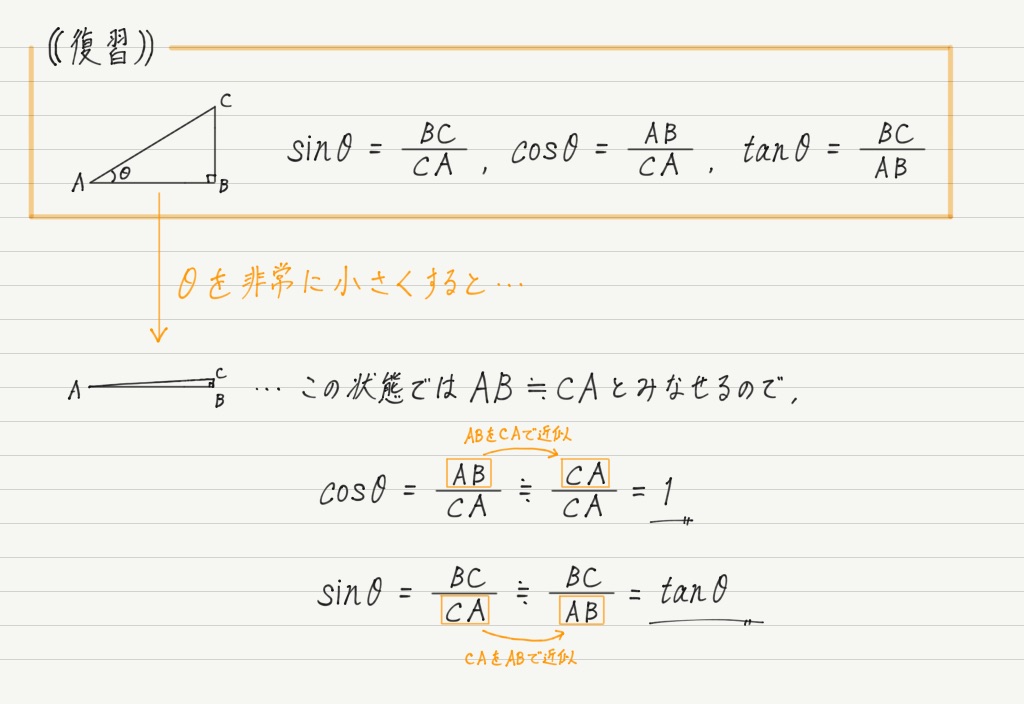 ((復習))
C
A θ B
sinθ = BC/CA , cosθ = AB/CA , tanθ = BC/AB
θを非常に小さくすると…
A C B … この状態では AB ≒ CA とみなせるので,
ABをCAで近似
cosθ = AB/CA ≒ CA/CA = 1
sinθ = BC/CA ≒ BC/AB = tanθ
CAをABで近似